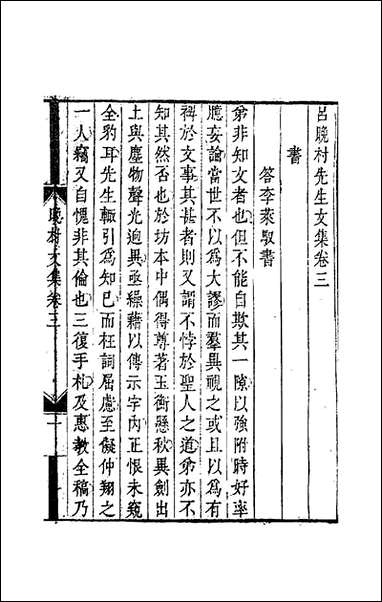 呂晚村先生文集卷三
書
答李萊馭書
弟非知文者也但不能自欺其一隙以強附時好率
臆妄論當世不以為大謬而羣異視之或且以為有
裨於文事其甚者則又謂不悖於聖人之道弟亦不
知其然否也於坊本中偶得尊著玉衡懸秋異劍出
土與塵物聲光迥異亟繰藉以傳示字內正恨未窺
全豹耳先生輒引為知己而枉詞屈慮至儗仲翔之
一人竊又自愧非其倫也三復手札及惠教全稿乃
晚村文集卷三
一